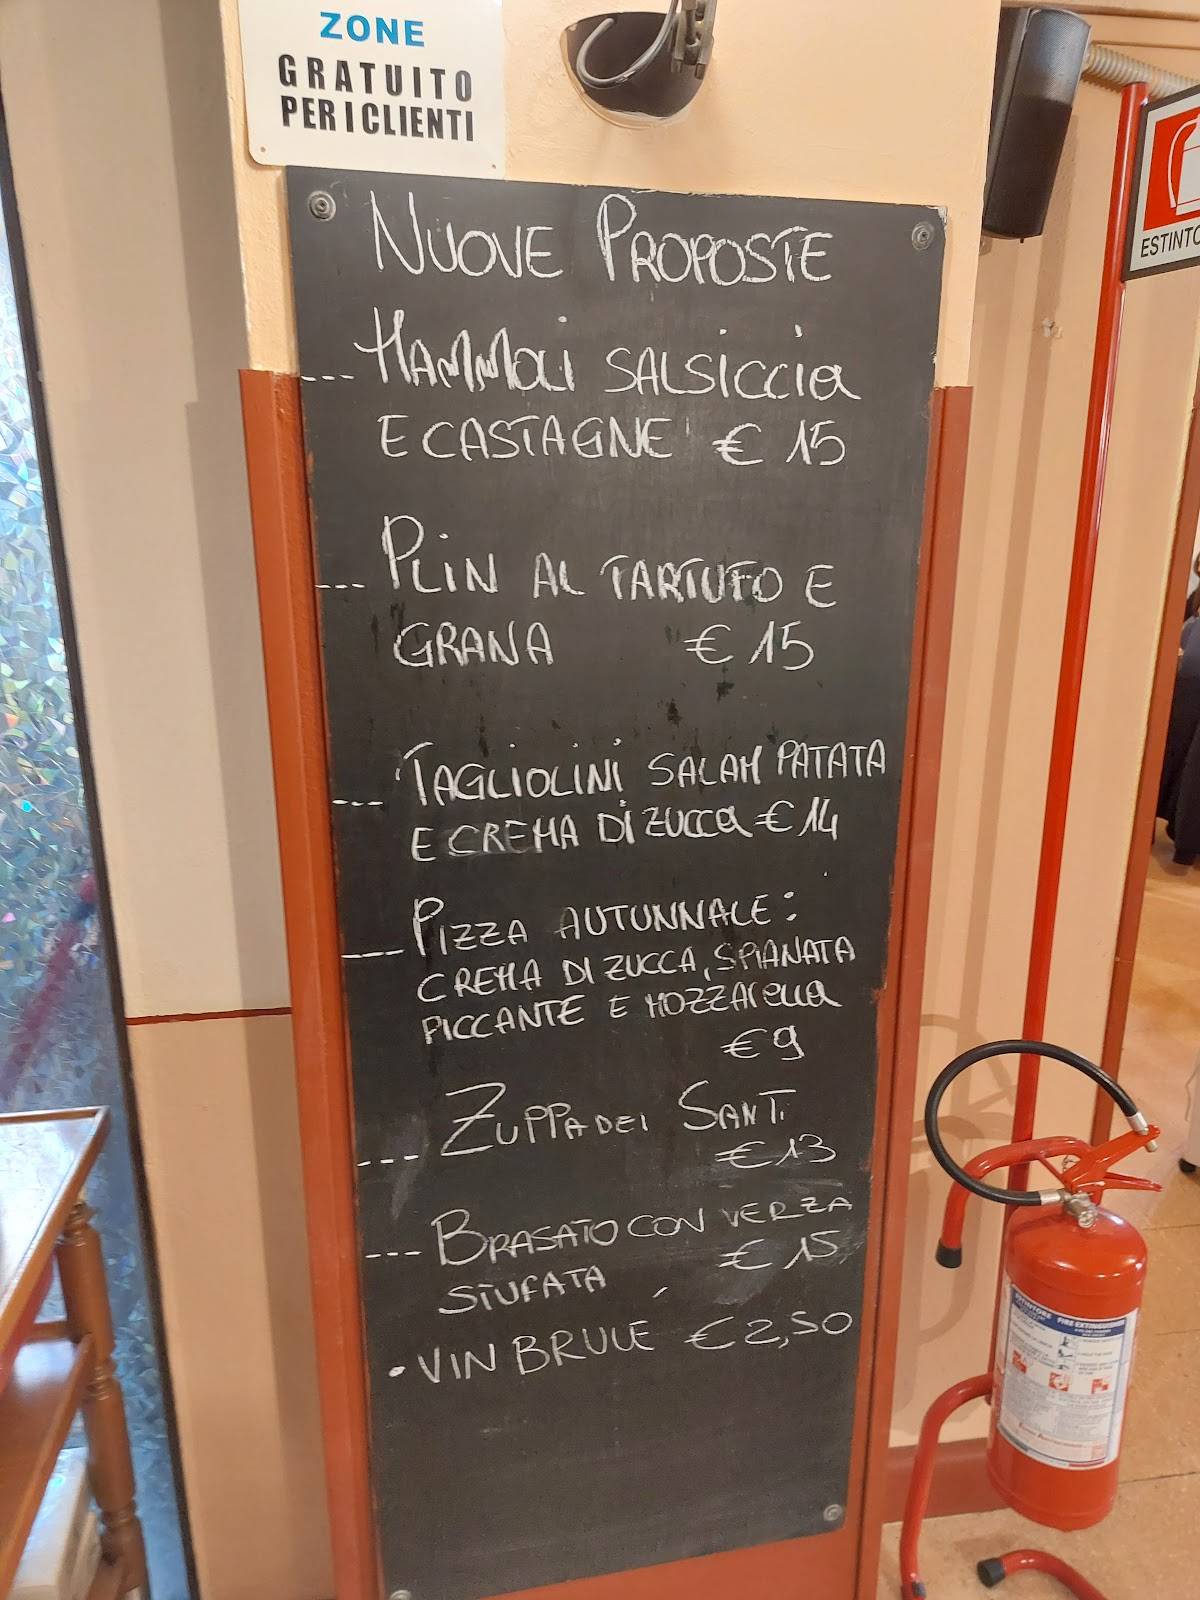 ZONE
GRATUITO
PER I CLIENTI
ESTINTO
NUOVE PROPOSTE
--- MAMMOLI SALSICCIA
E CASTAGNE € 15
--- PLIN AL TARTUFO E
GRANA € 15
--- TAGLIOLINI SALAM PATATA
E CREMA DI ZUCCA € 14
--- PIZZA AUTUNNALE:
CREMA DI ZUCCA, SPIANATA
PICCANTE E MOZZARELLA
€ 9
--- ZUPPA DEI SANTI
€ 13
--- BRASATO CON VERZA
STUFATA € 15
• VIN BRULE € 2,50
FIRE EXTINGUISHER